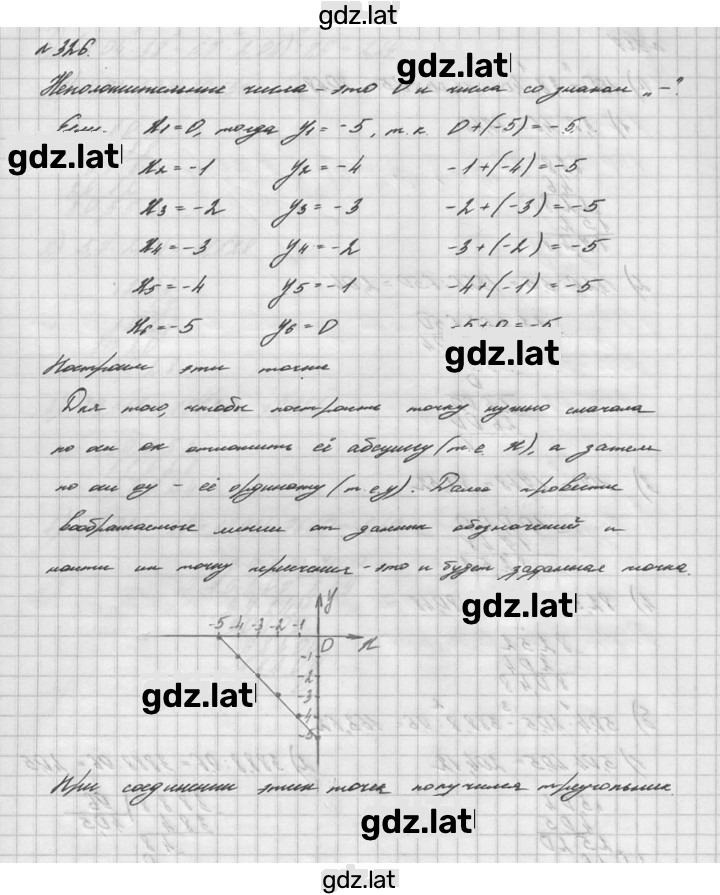 gdz.latl
№ 326.
gdz.latl
Неположительные числа - это 0 и числа со знаком „-“.
Если x₁=0, тогда y₁=-5, т.к. 0+(-5)=-5.
gdz.latl
x₂=-1 y₂=-4 -1+(-4)=-5
x₃=-2 y₃=-3 -2+(-3)=-5
x₄=-3 y₄=-2 -3+(-2)=-5
x₅=-4 y₅=-1 -4+(-1)=-5
x₆=-5 y₆=0 -5+0=-5
gdz.latl
Построим эти точки
Для того, чтобы построить точку нужно сначала
по оси ох отложить её абсциссу (т.е. x), а затем
по оси оу - её ординату (т.е. y). Далее провести
воображаемые линии от данных обозначений и
найти их точку пересечения - это и будет заданная точка.
gdz.latl
y
-5 -4 -3 -2 -1
0 x
-1
-2
-3
-4
-5
gdz.latl
При соединении этих точек получился треугольник.
gdz.latl
gdz.latl